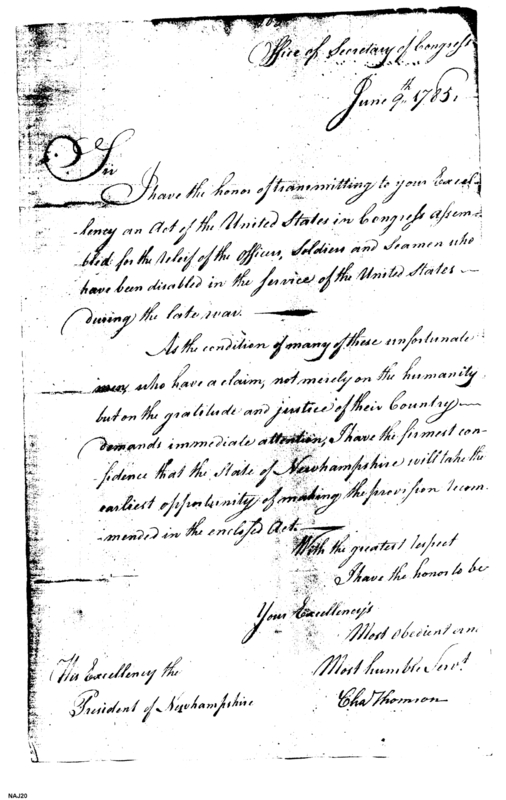 Office of Secretary of Congress
June 9th 1785.
Sir
I have the honor of transmitting to your Excel-
-lency an Act of the United States in Congress Assem-
-bled for the relief of the Officers, Soldiers and Seamen who
have been disabled in the service of the United States
during the late war.
As the condition of many of these unfortunate
men, who have a claim, not merely on the humanity
but on the gratitude and justice of their Country
demands immediate attention, I have the firmest con-
-fidence that the State of Newhampshire will take the
earliest opportunity of making the provision recom-
-mended in the enclosed Act.
With the greatest respect
I have the honor to be
Your Excellency's
Most obedient an
Most humble Servt
Chas Thomson
His Excellency the
President of Newhampshire
NAJ20